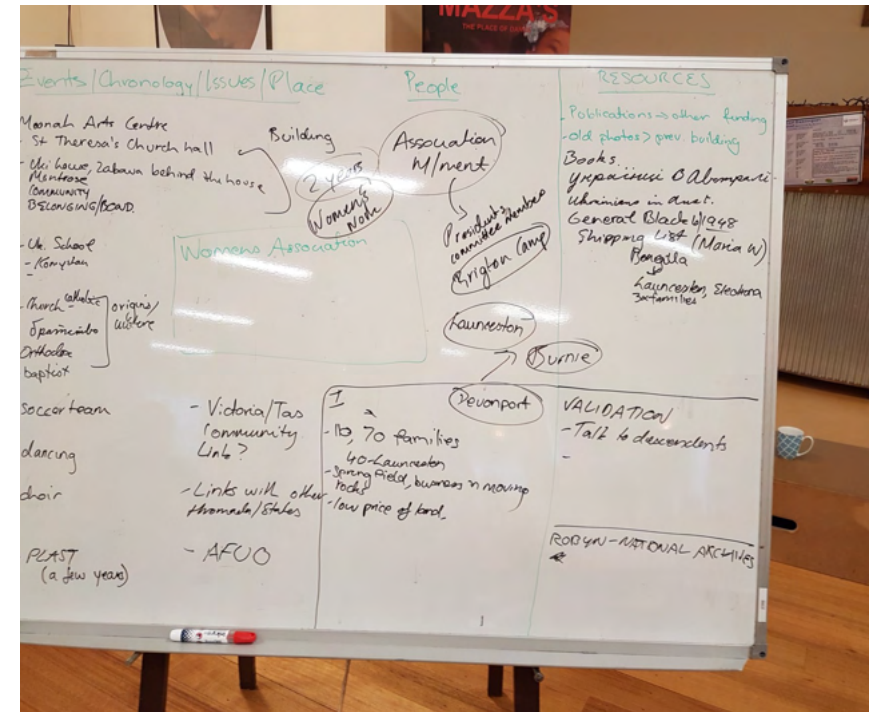 MAZZA'S
THE PLACE OF
Events/Chronology/Issues/Place
Moonah Arts Centre
- St Theresa's Church hall
- Uki house, Zabava behind the house
Montrose
COMMUNITY
BELONGING/BOND.
- Uk. School
- Church catholic
Orthodox
baptist
origins/
soccer team
dancing
choir
PLAST
(a few years)
- Victoria/Tas
Community
Link?
- Links with other
Hromada/States
- AFUO
Building
2 years
Women's
Womens Association
People
Association
M/ment
Presidents
committee members
Brigton Camp
Launceston
Burnie
Devonport
I
- 10, 70 families
40-Launceston
- Springfield, business n moving
rocks
- low price of land,
RESOURCES
- Publications → other funding
- old photos > prev. building
Books
Українці в Австралії -
Ukrainians in Aust.
General Black 6/1948
Shipping List (Maria W)
Bonegilla
Launceston, Electrona
3x families
VALIDATION
- Talk to descendents
-
ROBYN - NATIONAL ARCHIVES